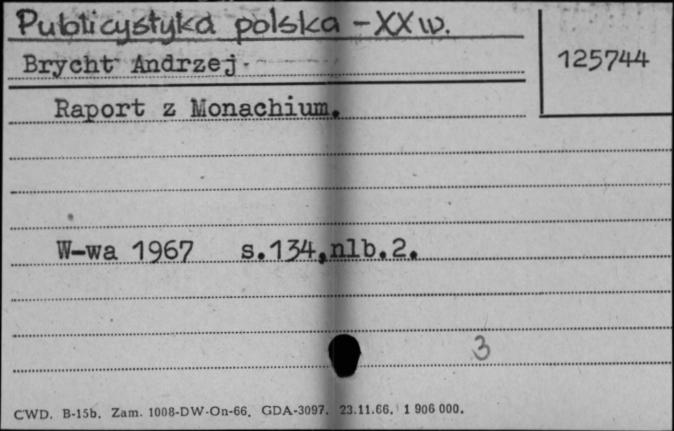 Publicystyka polska - XX w.
Brycht Andrzej
125744
Raport z Monachium.
W-wa 1967 s.134,nlb.2.
3
CWD. B-15b. Zam. 1008-DW-On-66. GDA-3097. 23.11.66. 1 906 000.